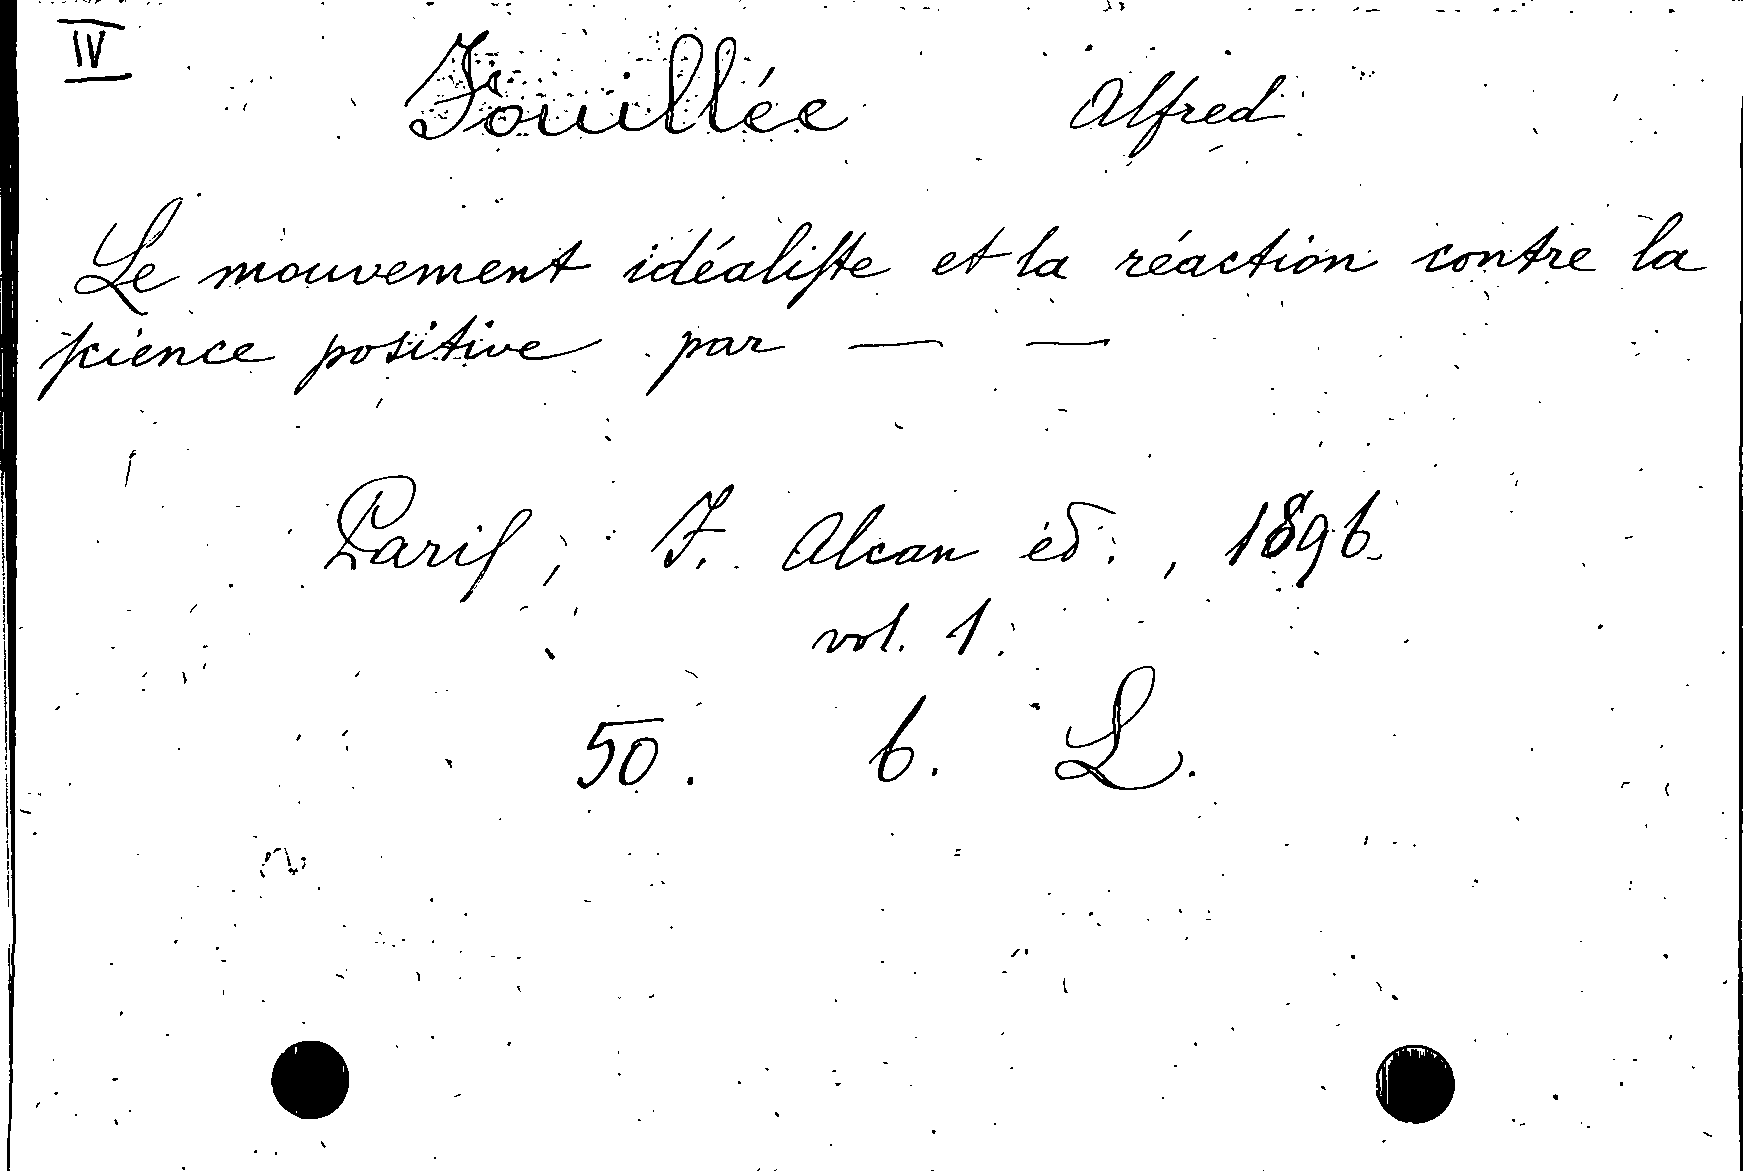 IV
Fouillée Alfred
Le mouvement idéaliste et la réaction contre la
science positive par — —
Paris, F. Alcan éd., 1896.
vol. 1.
50. 6. L.